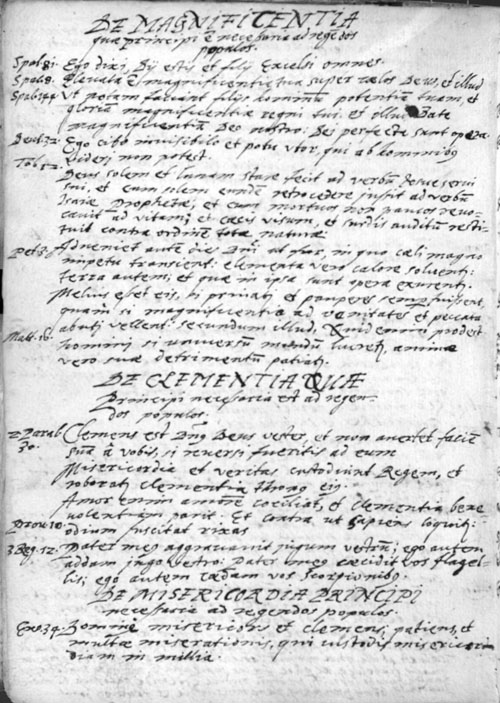 DE MAGNIFICENTIA
quæ principi ē necessaria ad regēdos
populos.
Psal. 81. Ego dixi, Dij estis et filij Excelsi omnes.
Psal. 8. Elevata ē magnificentia tua super cœlos Deus, et illud
Psal. 144. Ut notam faciant filijs hominum potentiam tuam, et
gloriam magnificentiæ regni tui. et illud Date
magnificentiam Deo nostro: Dei perfecta sunt opera.
Deut. 32. Ego cibo invisibili et potu utor, qui ab hominibus
Tob. 12. videri non potest.
Deus solem et lunam stare fecit ad verbū Josue servi
sui, et eum solem eundē retrocedere jussit ad verbū
Isaiæ Prophetæ, et cum mortuos non paucos revo-
cavit ad vitam; et cæcis visum, et surdis auditum resti-
tuit contra ordinē totæ naturæ.
Pet. 3. Adveniet autē dies Dn̄i ut fur, in quo cæli magno
impetu transient: elementa vero calore solventr:
terra autem, et quæ in ipsa sunt opera exurentr.
Melius esset eis, si privati et pauperes semp fuissent,
quam si magnificentia ad vanitates et peccata
abuti vellent: secundum illud. Quid enim prodest
Matt. 16. homini si universū mundū lucretr, animæ
vero suæ detrimentū patiatr.
DE CLEMENTIA QUÆ
Principi necessaria est ad regen-
dos populos.
2 Paral. Clemens est Dn̄s Deus vester, et non avertet faciē
30. suā à vobis, si reversi fueritis ad eum
Misericordia et veritas custodiunt Regem, et
roboratr clementia thronus eius.
Amor enim amorē conciliat, et clementia bene
volentiam parit. Et contra ut sapiens loquitr:
Prov. 10. odium suscitat rixas
3 Reg. 12. Pater meus aggravavit jugum vestrū, ego autem
addam jugo vestro: Pater meus cæcidit vos flagel-
lis; ego autem cædam vos scorpionibus.
DE MISERICORDIA PRINCIPI
necessaria ad regendos populos.
Exo. 34. Domine misericors et clemens, patiens, et
multæ miserationis, qui custodis misericor-
diam in millia.